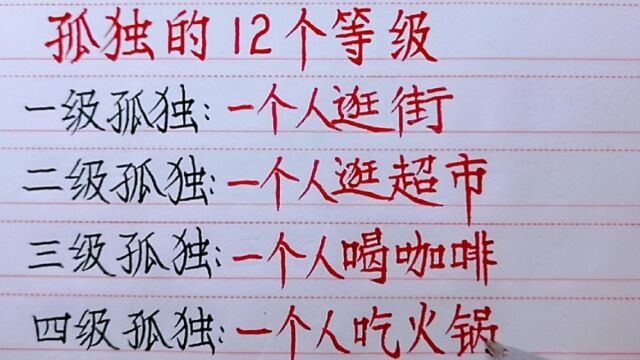 孤独的12个等级
一级孤独:一个人逛街
二级孤独:一个人逛超市
三级孤独:一个人喝咖啡
四级孤独:一个人吃火锅